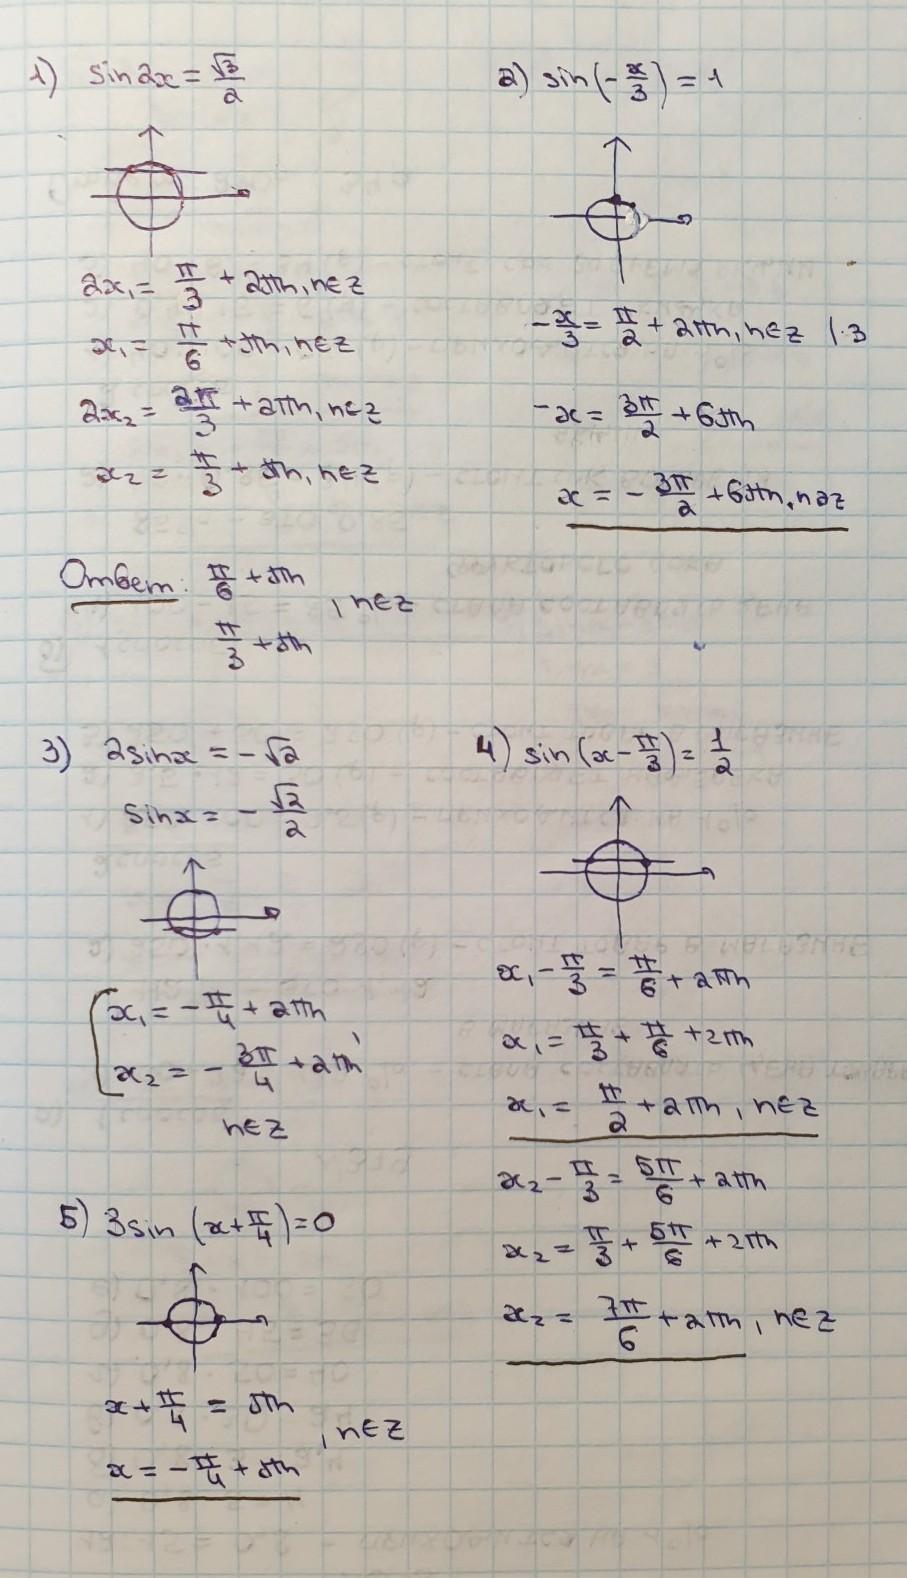 1) sin2x = √3/2
2x₁ = π/3 + 2πn, n∈Z
x₁ = π/6 + πn, n∈Z
2x₂ = 2π/3 + 2πn, n∈Z
x₂ = π/3 + πn, n∈Z
Ответ: π/6 + πn
, n∈Z
π/3 + πn
2) sin(-x/3) = 1
-x/3 = π/2 + 2πn, n∈Z |·3
-x = 3π/2 + 6πn
x = -3π/2 + 6πn, n∋Z
3) 2sinx = -√2
sinx = -√2/2
x₁ = -π/4 + 2πn
x₂ = -3π/4 + 2πn
n∈Z
4) sin(x - π/3) = 1/2
x₁ - π/3 = π/6 + 2πn
x₁ = π/3 + π/6 + 2πn
x₁ = π/2 + 2πn, n∈Z
x₂ - π/3 = 5π/6 + 2πn
x₂ = π/3 + 5π/6 + 2πn
x₂ = 7π/6 + 2πn, n∈Z
5) 3sin(x + π/4) = 0
x + π/4 = πn
, n∈Z
x = -π/4 + πn